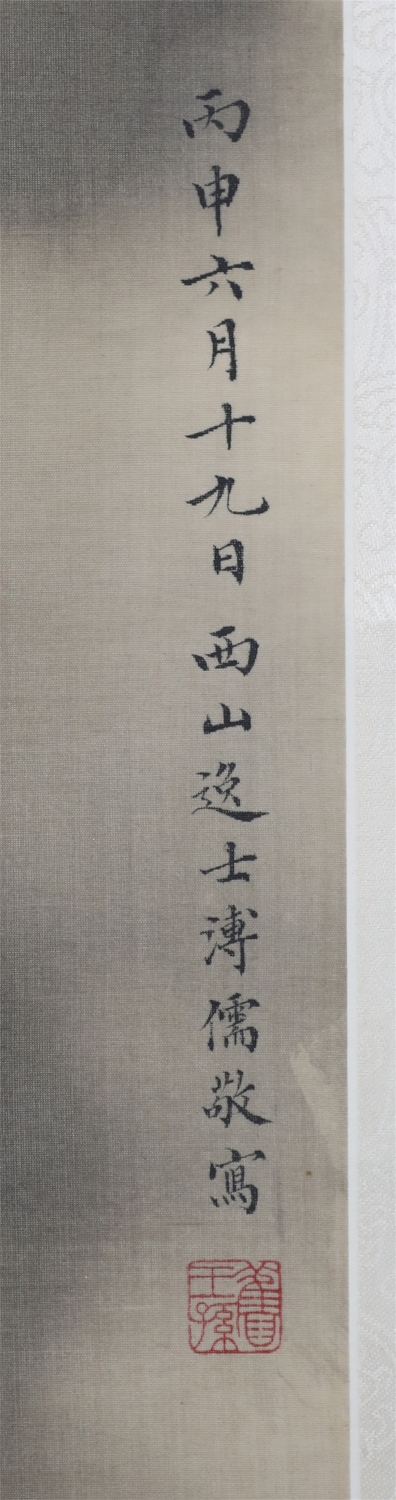 丙申六月十九日西山逸士溥儒敬寫
舊王孫